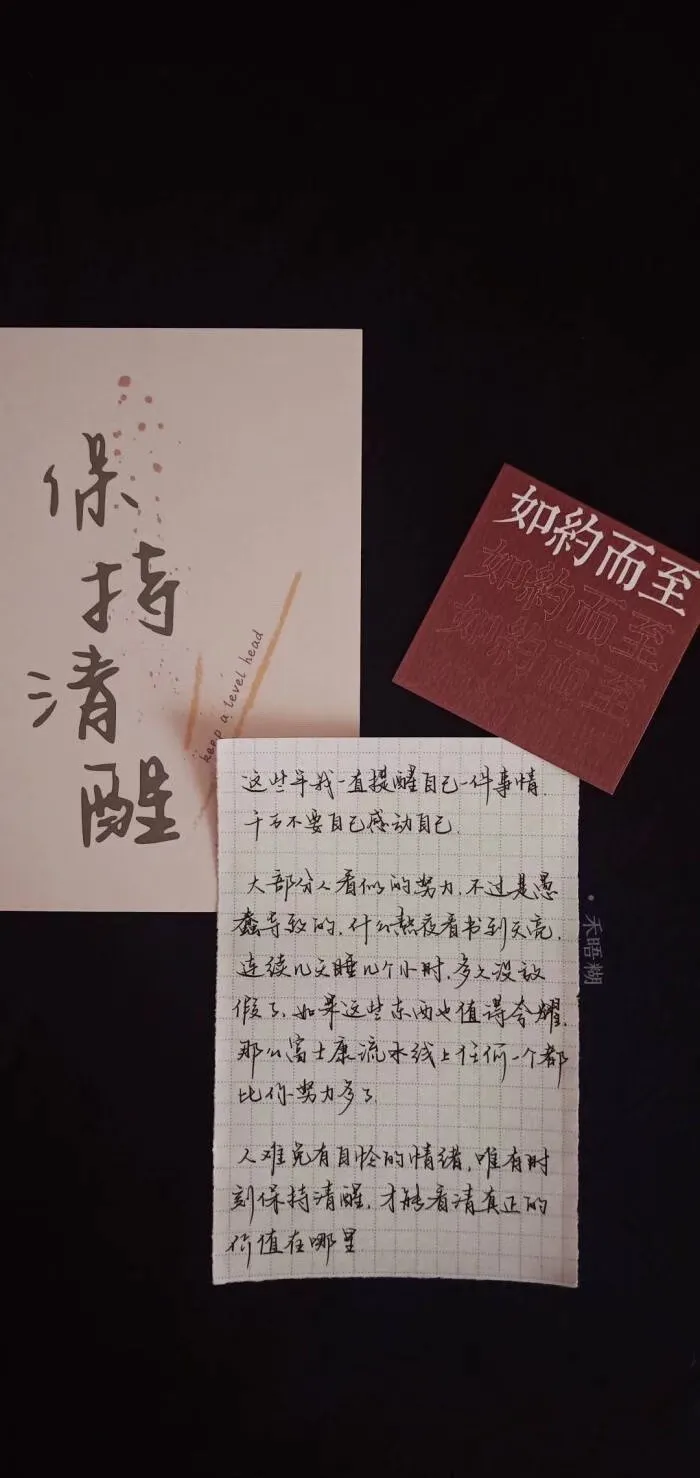 保
持
清
醒
keep a level head
如約而至
如約而至
如約而至
这些年我一直提醒自己一件事情.
千万不要自己感动自己.
大部分人看似的努力,不过是愚
蠢导致的,什么熬夜看书到天亮,
连续几天睡几个小时,多久没放
假了,如果这些东西也值得夸耀,
那么富士康流水线上任何一个都
比你努力多了.
人难免有自怜的情绪,唯有时
刻保持清醒,才能看清真正的
价值在哪里
禾晤糊